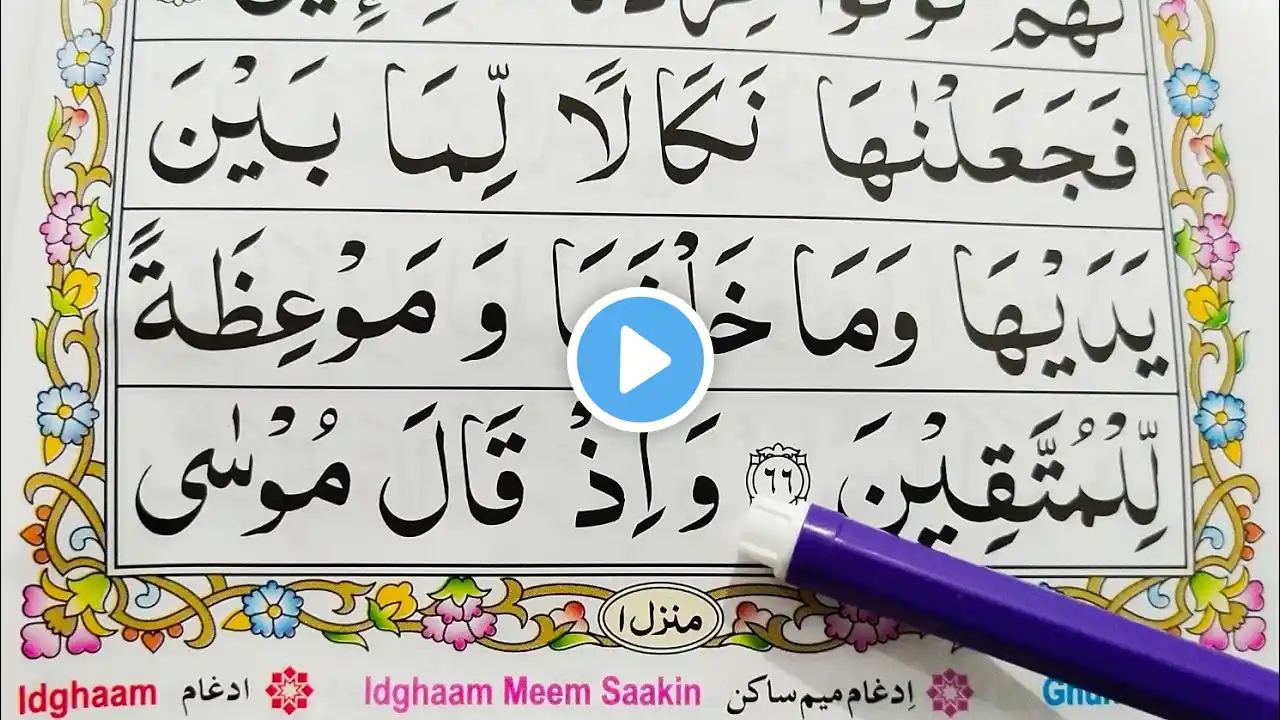 لَهُمْ كُوْنُوْا قِرَدَةً
فَجَعَلْنٰهَا نَكَالًا لِّمَا بَيْنَ
يَدَيْهَا وَمَا خَلْفَهَا وَ مَوْعِظَةً
لِّلْمُتَّقِيْنَ ۝٦٦ وَاِذْ قَالَ مُوْسٰى
منزل ١
Idghaam ادغام Idghaam Meem Saakin اِدغام میم ساکن